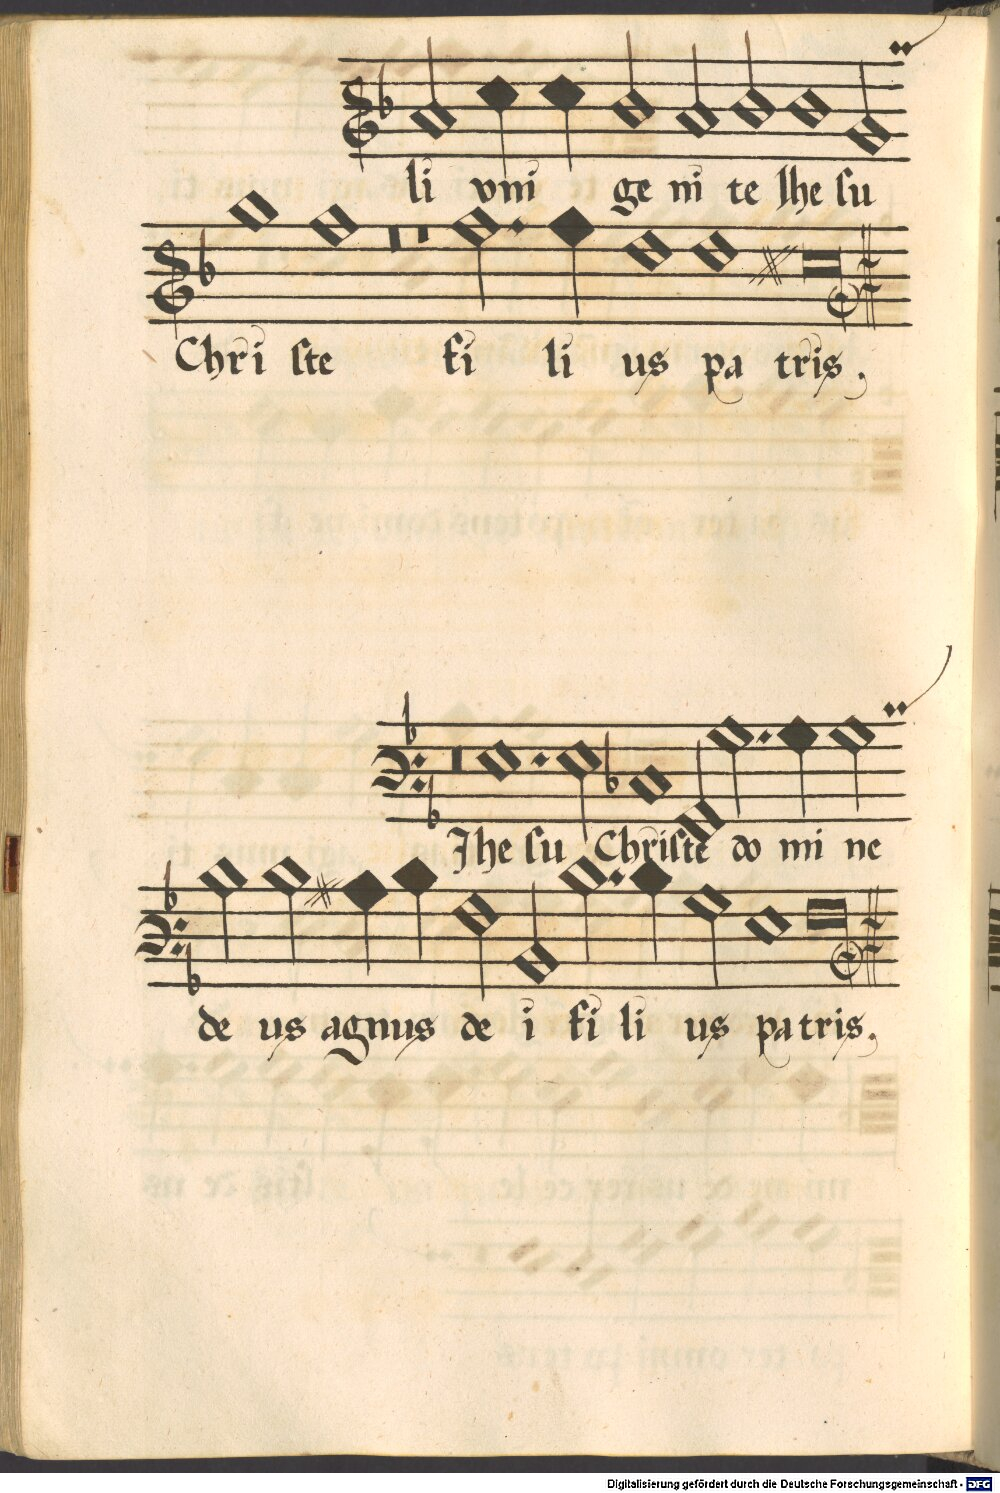 li vni ge ni te Jhe su
Chri ste fi li us pa tris.
Jhe su Christe do mi ne
de us agnus de i fi li us patris.
Digitalisierung gefördert durch die Deutsche Forschungsgemeinschaft - DFG